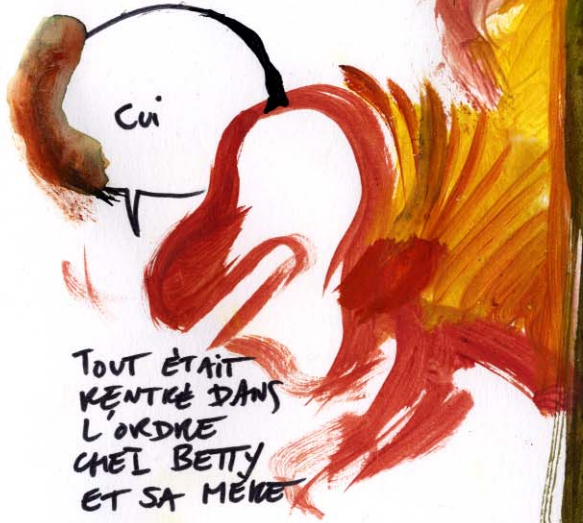 Cui
TOUT ÉTAIT
RENTRÉ DANS
L'ORDRE
CHEZ BETTY
ET SA MÈRE